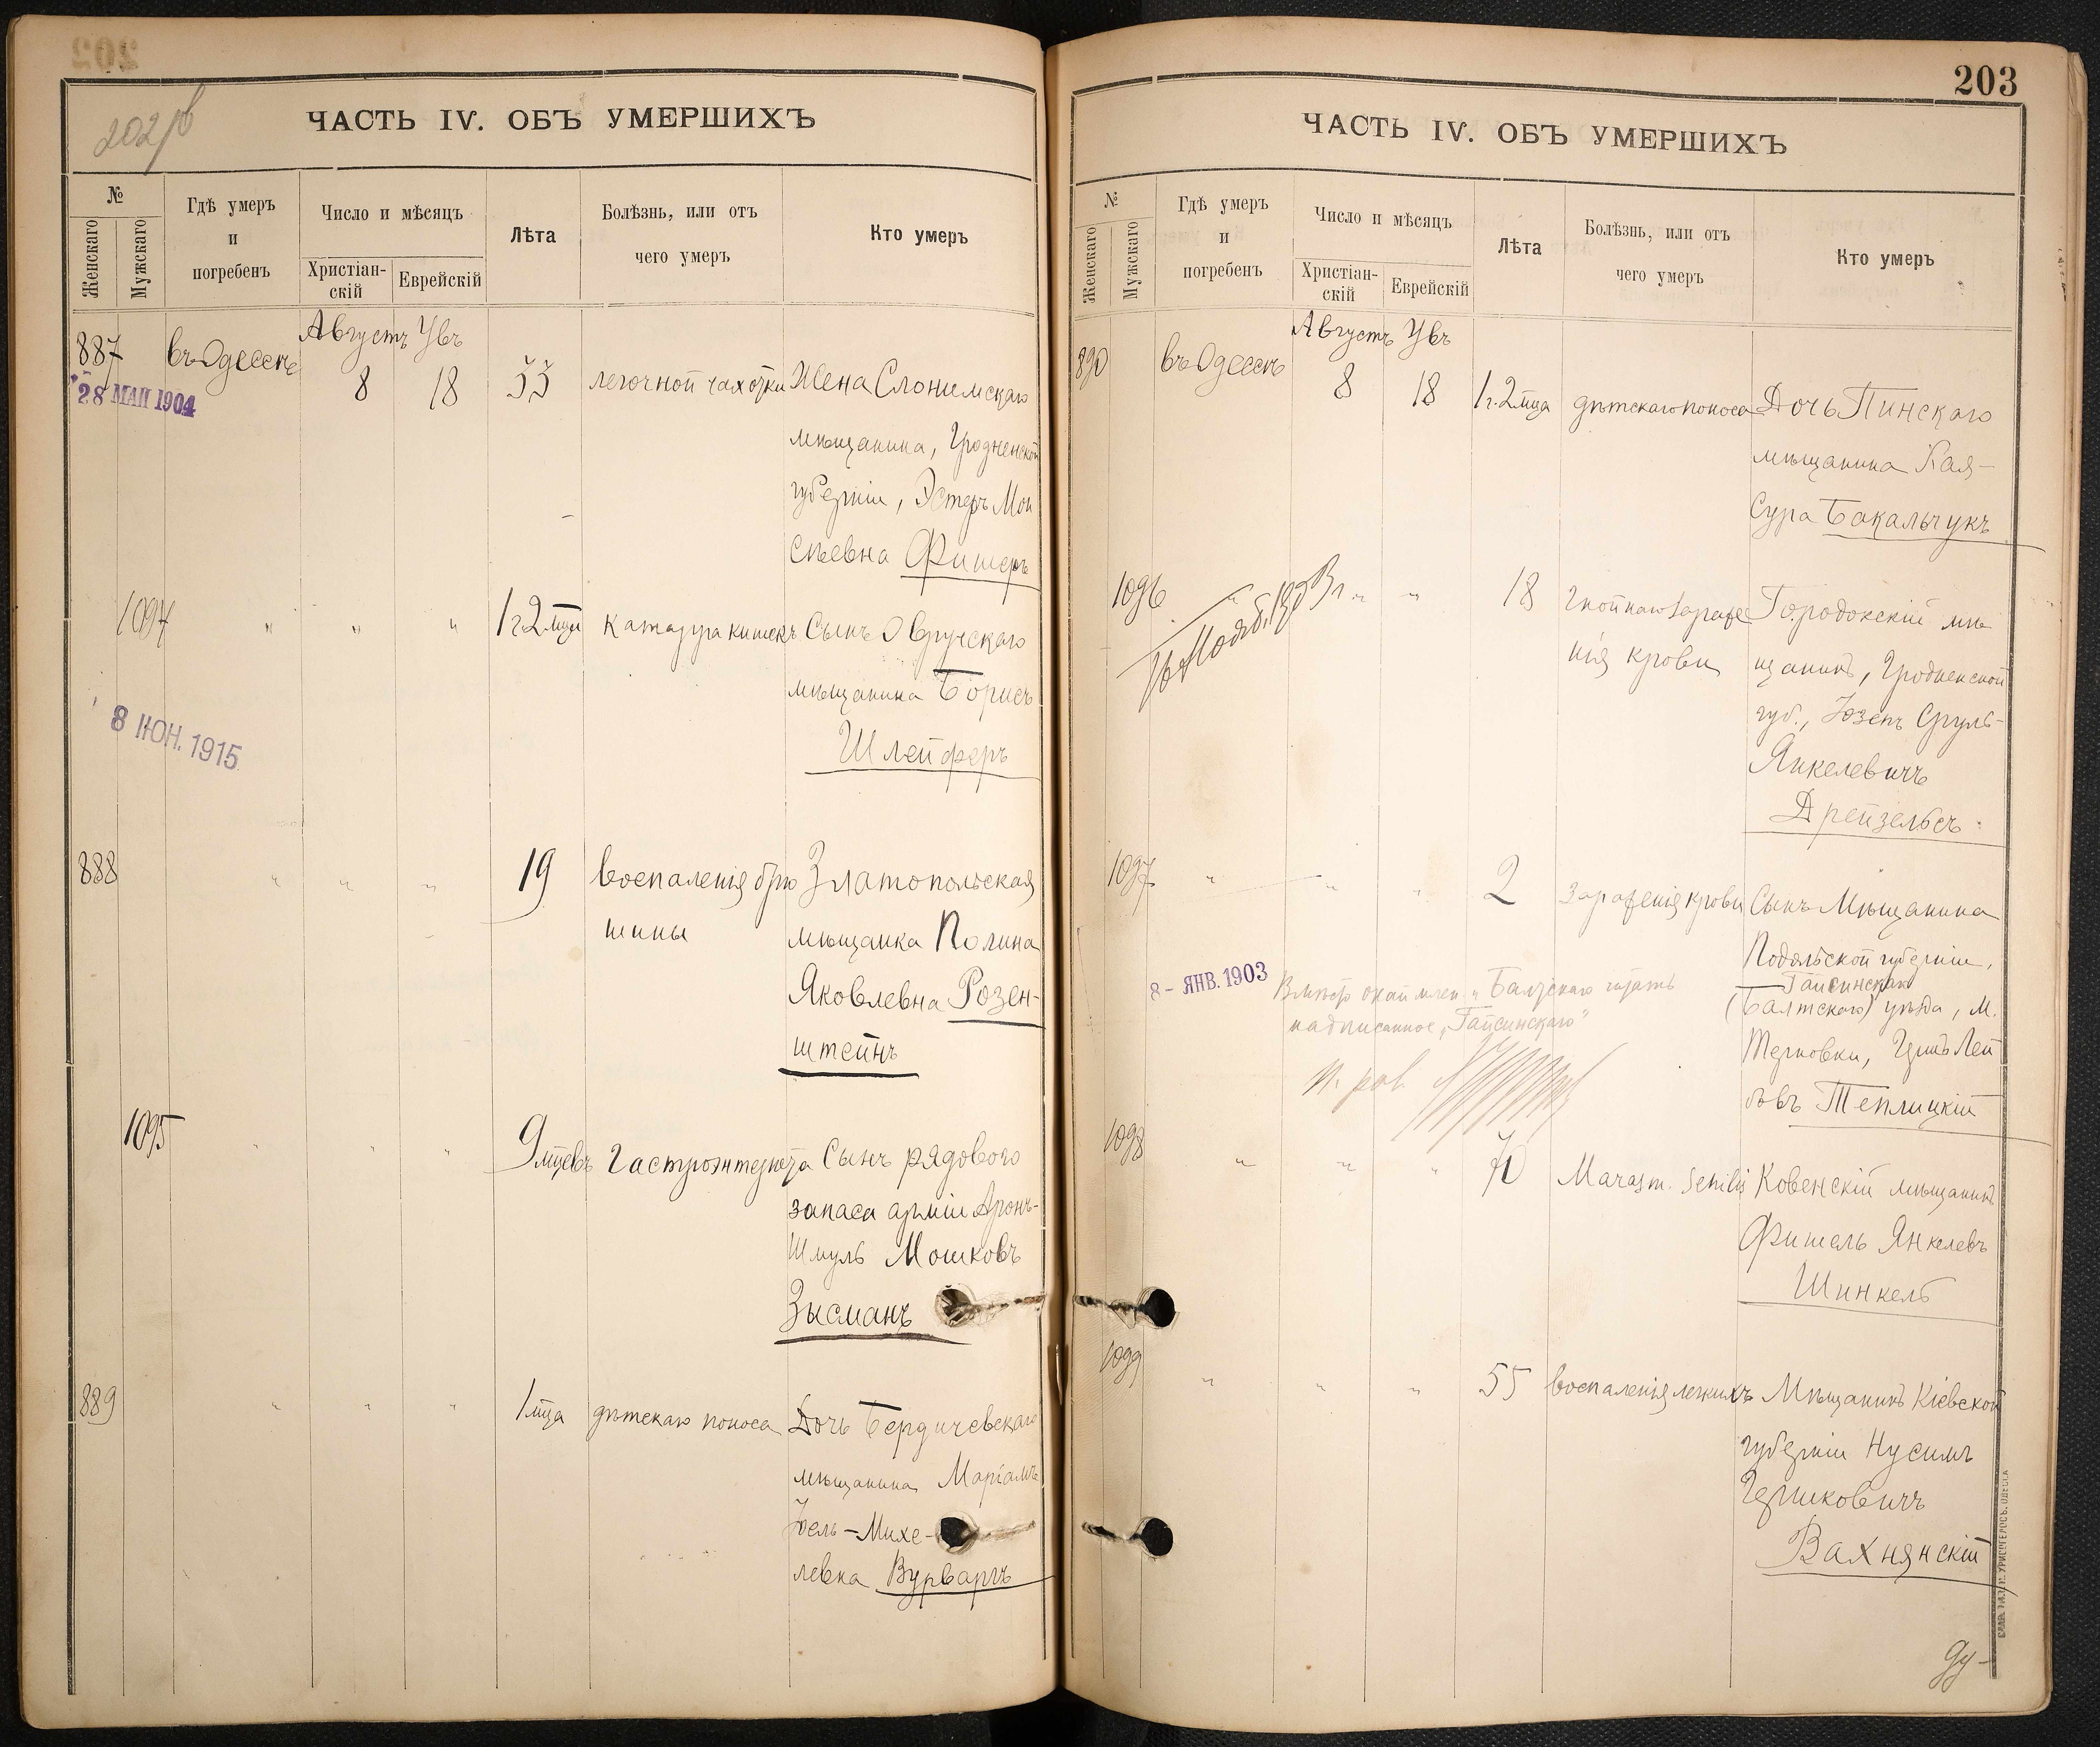 202 об
ЧАСТЬ IV. ОБЪ УМЕРШИХЪ
№
Женскаго
Мужскаго
Гдѣ умеръ
и
погребенъ
Число и мѣсяцъ
Христіан-
скій
Еврейскій
Лѣта
Болѣзнь, или отъ
чего умеръ
Кто умеръ
Августъ Увъ
887 въ Одессѣ 8 18 55 легочной чахотки Жена Слонимскаго
28 МАЙ 1904
мѣщанина, Гродненской
губерніи, Эстеръ Мои
сѣевна Фишеръ
1094 " " " 1 г. 2 мца катарра кишекъ Сынъ Овручскаго
мѣщанина Борисъ
Шлейферъ
8 ІЮН. 1915
888 " " " 19 воспаленія брю Златопольская
шины мѣщанка Полина
Яковлевна Розен-
штейнъ
1095 " " " 9 мцевъ гастроэнтерита Сынъ рядового
запаса арміи Аронъ-
Шмуль Мошковъ
Зысманъ
889 " " " 1 мца дѣтскаго поноса Дочь Бердичевскаго
мѣщанина Маріамъ
Юель-Михе-
левна Вурваргъ
203
ЧАСТЬ IV. ОБЪ УМЕРШИХЪ
№
Женскаго
Мужскаго
Гдѣ умеръ
и
погребенъ
Число и мѣсяцъ
Христіан-
скій
Еврейскій
Лѣта
Болѣзнь, или отъ
чего умеръ
Кто умеръ
Августъ Увъ
890 въ Одессѣ 8 18 1 г. 2 мца дѣтскаго поноса Дочь Пинскаго
мѣщанина Хая-
Сура Бакальчукъ
1096 " " " 18 гнойнаго зараже Городокскій мѣ
нія крови щанинъ, Гродненской
губ., Юзепъ Сруль-
Янкелевичъ
Дрейзельсъ
1097 " " " 2 Зараженія крови Сынъ Мѣщанина
Подольской губерніи,
Гайсинскаго
(Балтскаго) уѣзда, М.
Терновки, Герш Лей
бовъ Теплицкій
8 - ЯНВ. 1903
Балтскаго читать
надписанное „Гайсинскаго"
1098 " " " 70 Marasm. senilis Ковенскій мѣщанинъ
Фишель Янкелевъ
Шинкель
1099 " " " 55 воспаленія легкихъ Мѣщанинъ Кіевской
губерніи Нусимъ
Гершковичъ
Вахнянскій
Ду-